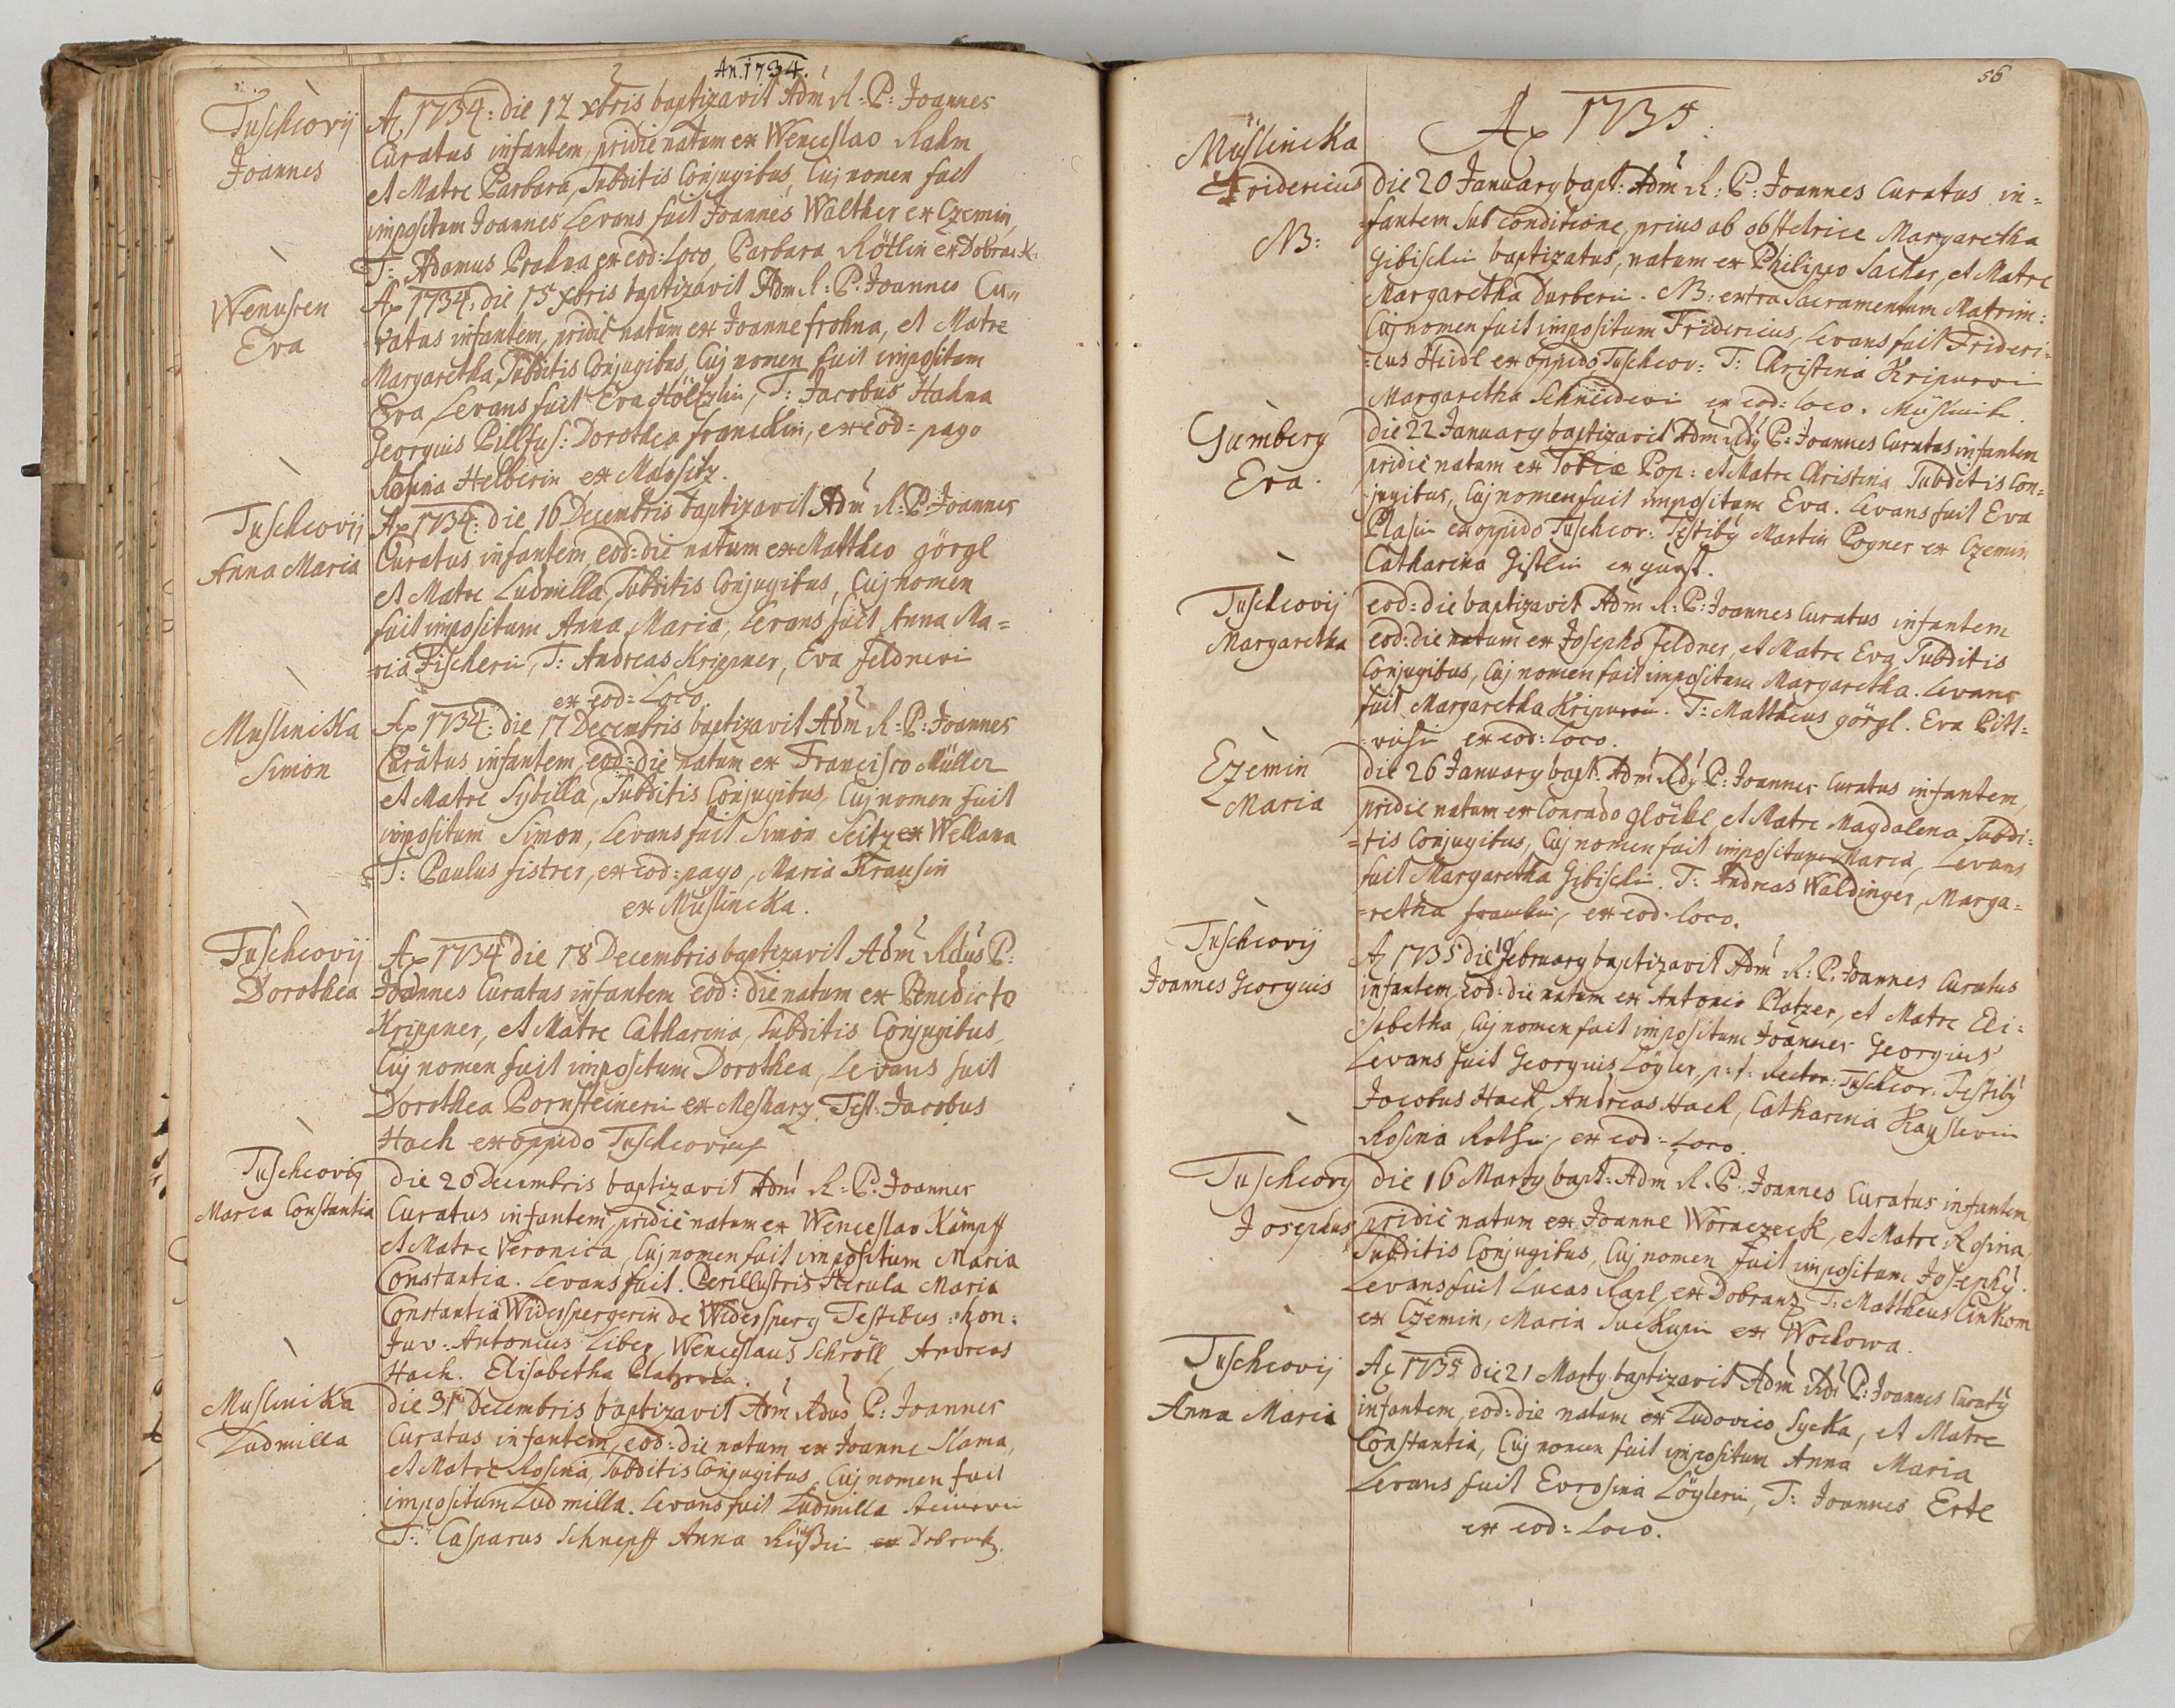 An. 1734.
Tuschcovij
Joannes
Aō 1734: die 12 xbris baptizavit Adm R: P: Joannes
Curatus infantem, pridie natum ex Wenceslao Rahm
et Matre Barbara, Subditis Conjugibus, Cuj nomen fuit
impositum Joannes Levans fuit Joannes Walther ex Czemin,
T: Adamus Prahna ex eod: Loco, Barbara Rötlin ex
Wenusen
Eva
Aō 1734: die 15 xbris baptizavit Adm R: P: Joannes Cu„
ratus infantem, pridie natum ex Joanne frohna, et Matre
Margaretha, Subditis Conjugibus, Cuj nomen fuit impositum
Eva, Levans fuit Eva Höltzlin, T: Jacobus Hahna
Georgius Pillfus: Dorothea franckin, ex eod= pago
Helberin ex Malositz.
Tuschcovij
Anna Maria
Aō 1734: die 16 Decembris baptizavit Adm R: P: Joannes
Curatus infantem, eod: die natum ex Mattheo görgl
et Matre Ludmilla, Subditis Conjugibus, Cuj nomen
fuit impositum Anna Maria, Levans fuit Anna Ma=
=ria Fischerin, T: Andreas Krippner, Eva feldnerin
ex eod= Loco.
Muslincka
Simon
Aō 1734: die 17 Decembris baptizavit Adm R: P: Joannes
Curatus infantem, eod: die natum ex Francisco Müller
et Matre Sybilla, Subditis Conjugibus, Cuj nomen fuit
impositum Simon, Levans fuit Simon Seitz ex Wellana
T: Paulus fistrer, ex eod: pago, Maria Krausin
ex Muslincka.
Tuschcovij
Dorothea
Aō 1734 die 18 Decembris baptizavit Adm Rdus P:
Joannes Curatus infantem eod: die natum ex Benedicto
Krippner, et Matre Catharina, Subditis Conjugibus,
Cuj nomen fuit impositum Dorothea, Levans fuit
Dorothea Bornsteinerin ex Mesharz, Test: Jacobus
Hach ex oppido Tuschcoviens
Tuschcovij
Maria Constantia
die 20 Decembris baptizavit Adm R: P: Joannes
Curatus infantem pridie natum ex Wenceslao Kämpff
et Matre Veronica, Cuj nomen fuit impositum Maria
Constantia. Levans fuit. Perillustris Herula Maria
Constantia Widerspergerin de Widersperg Testibus: hon:
Juv: Antonius Liber, Wenceslaus Schröll, Andreas
Hach. Elisabetha Platzerin.
Muslincka
Ludmilla
die 31 Decembris baptizavit Adm Rdus P: Joannes
Curatus infantem, eod: die natum ex Joanne Slama,
et Matre Rosina, Subditis Conjugibus, Cuj nomen fuit
impositum Ludmilla. Levans fuit Ludmilla
T: Casparus Schnepff Anna ex
56
Aō 1735:
Muslincka
Fridericus
NB:
die 20 January bapt: Adm R: P: Joannes Curatus in=
=fantem Sub conditione, prius ab obstetrice Margaretha
Gibischin baptizatus, natum ex Philippo Sacher, et Matre
Margaretha Durberin. NB: extra Sacramentum Matrim:
Cuj nomen fuit impositum Fridericus, Levans fuit Frideri=
=cus Heidl ex oppido Tuschcov: T: Christina Kripnerin
Margaretha Schneiderin ex eod: loco.
Gumberg
Eva.
die 22 January baptizavit Adm Rdy P: Joannes Curatus infantem
pridie natum ex Tobia Pop: et Matre Christina Subditis Con=
jugibus, Cuj nomen fuit impositum Eva. Levans fuit Eva
Plasin ex oppido Tuschcov: Testiby Martin Pogner ex Czemin
Catharina Gistlin ex
Tuschcovij
Margaretha
eod: die baptizavit Adm R: P: Joannes Curatus infantem
eod: die natum ex Josepho feldner, et Matre Eva, Subditis
Conjugibus, Cuj nomen fuit impositum Margaretha. Levans
fuit Margaretha Kripnerin. T: Mattheus görgl. Eva Pitt=
ex eod: Loco.
Czemin
Maria
die 26 January bapt: Adm Rdy P: Joannes Curatus infantem,
pridie natum ex Conrado glöckl, et Matre Magdalena, Subdi=
=tis Conjugibus, Cuj nomen fuit impositum Maria, Levans
fuit Margaretha Gibischin. T: Andreas Waldinger, Marga=
=retha franckin, ex eod: loco.
Tuschcovij
Joannes Georgius
Aō 1735 die 10 february baptizavit Adm R: P: Joannes Curatus
infantem, eod: die natum ex Antonio Platzer, et Matre Eli=
sabetha, Cuj nomen fuit impositum Joannes Georgius
Levans fuit Georgius Löyler, p: t: Rector: Tuschcov: Testiby
Jacobus Hach, Andreas Hach, Catharina Hayslerin
Rosina ex eod= Loco.
Tuschcovy
Josephus
die 16 Marty bapt: Adm R: P: Joannes Curatus infantem
pridie natum ex Joanne Woraczeck, et Matre Rosina,
Subditis Conjugibus, Cuj nomen fuit impositum Josephy.
Levans fuit Lucas Rapl ex Dobranz, T: Mattheus Cinkom
ex Czemin, Maria ex Wochowa.
Tuschcovij
Anna Maria
Aō 1735 die 21 Marty baptizavit Adm Rdy P: Joannes Curaty
infantem, eod: die natum ex Ludovico Sycka, et Matre
Constantia, Cuj nomen fuit impositum Anna Maria
Levans fuit Evrosina Löylerin, T: Joannes Erte
ex eod= Loco.